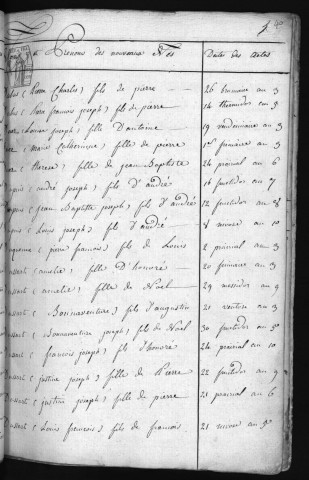 Prenoms des nouveaux Nés Dates des Actes
(Charles) fils de pierre 26 brumaire an 3
francois joseph) fils de pierre 14 thermidor an 3
joseph) fille D'antoine 19 vendemiaire an 3
(Marie Catherine) fille de pierre 1er frimaire an 3
(therese) fille de jean Baptiste 24 prairial an 6
(andré joseph) fils D'andré 16 fructidor an 7
(jean Baptiste joseph) fils D'andré 12 fructidor an 8
(Louis joseph) fils D'andré 8 nivose an 10
(pierre francois) fils de Louis 2 prairial an 3
(amelie) fille D'honoré 20 frimaire an 3
(amelie) fille de Noël 29 messidor an 9
(Bonnaventure) fils d'augustin 21 ventose an 3
(Bonnaventure joseph) fils de Noël 30 fructidor an 5
(francois joseph) fils d'honoré 24 prairial an 10
(justine joseph) fille de Pierre 22 fructidor an 9
(justine joseph) fille de pierre 21 prairial an 6
(Louis francois) fils de francois 21 nivose an 5